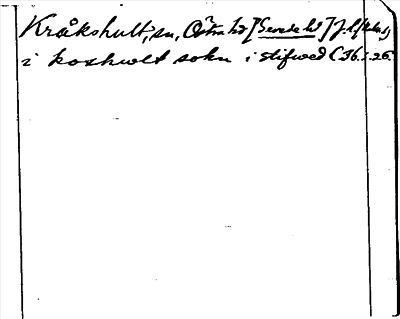 Kråkshult, sn, Östra hd [Sevede hd] J. l.
i koxhwlt sokn i stifwed C 36. s. 26.